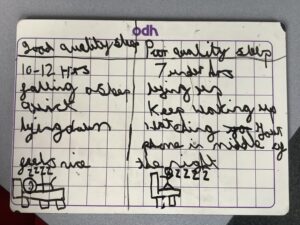 odh
good quality sleep
10-12 Hrs
falling asleep
Quick
lying down
feels nice
zzzz
Poor quality sleep
7 under hrs
Keep waking up
watching your
phone in middle of
the night
zzzz